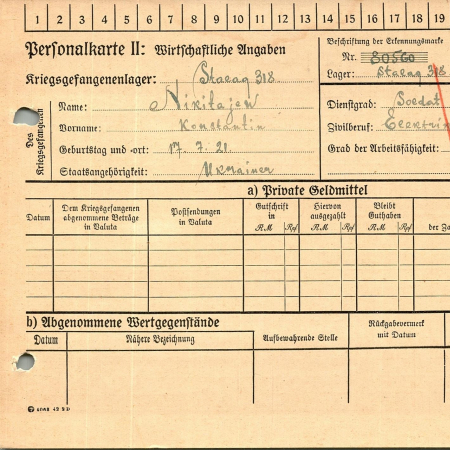 1 2 3 4 5 6 7 8 9 10 11 12 13 14 15 16 17 18 19
Personalkarte II: Wirtschaftliche Angaben
Kriegsgefangenenlager: Stalag 318
Beschriftung der Erkennungsmarke
Nr. 80560
Lager: Stalag 318
Des Kriegsgefangenen
Name: Nikitajen
Vorname: Konstantin
Geburtstag und -ort: 17. 7. 21.
Staatsangehörigkeit: Ukrainer
Dienstgrad: Soldat
Zivilberuf: Elektri
Grad der Arbeitsfähigkeit:
a) Private Geldmittel
Datum
Dem Kriegsgefangenen abgenommene Beträge in Valuta
Postsendungen in Valuta
Gutschrift in
RM Rpf
Hiervon ausgezahlt
RM Rpf
Bleibt Guthaben
RM Rpf
der Za
b) Abgenommene Wertgegenstände
Datum
Nähere Bezeichnung
Aufbewahrende Stelle
Rückgabevermerk mit Datum